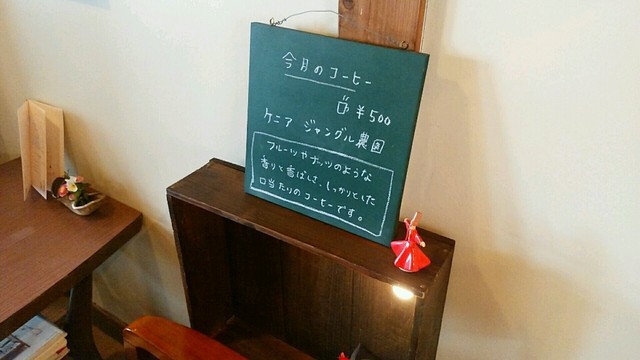 今月のコーヒー
¥500
ケニア ジャングル農園
フルーツやナッツのような
香りと香ばしさ、しっかりとした
口当たりのコーヒーです。